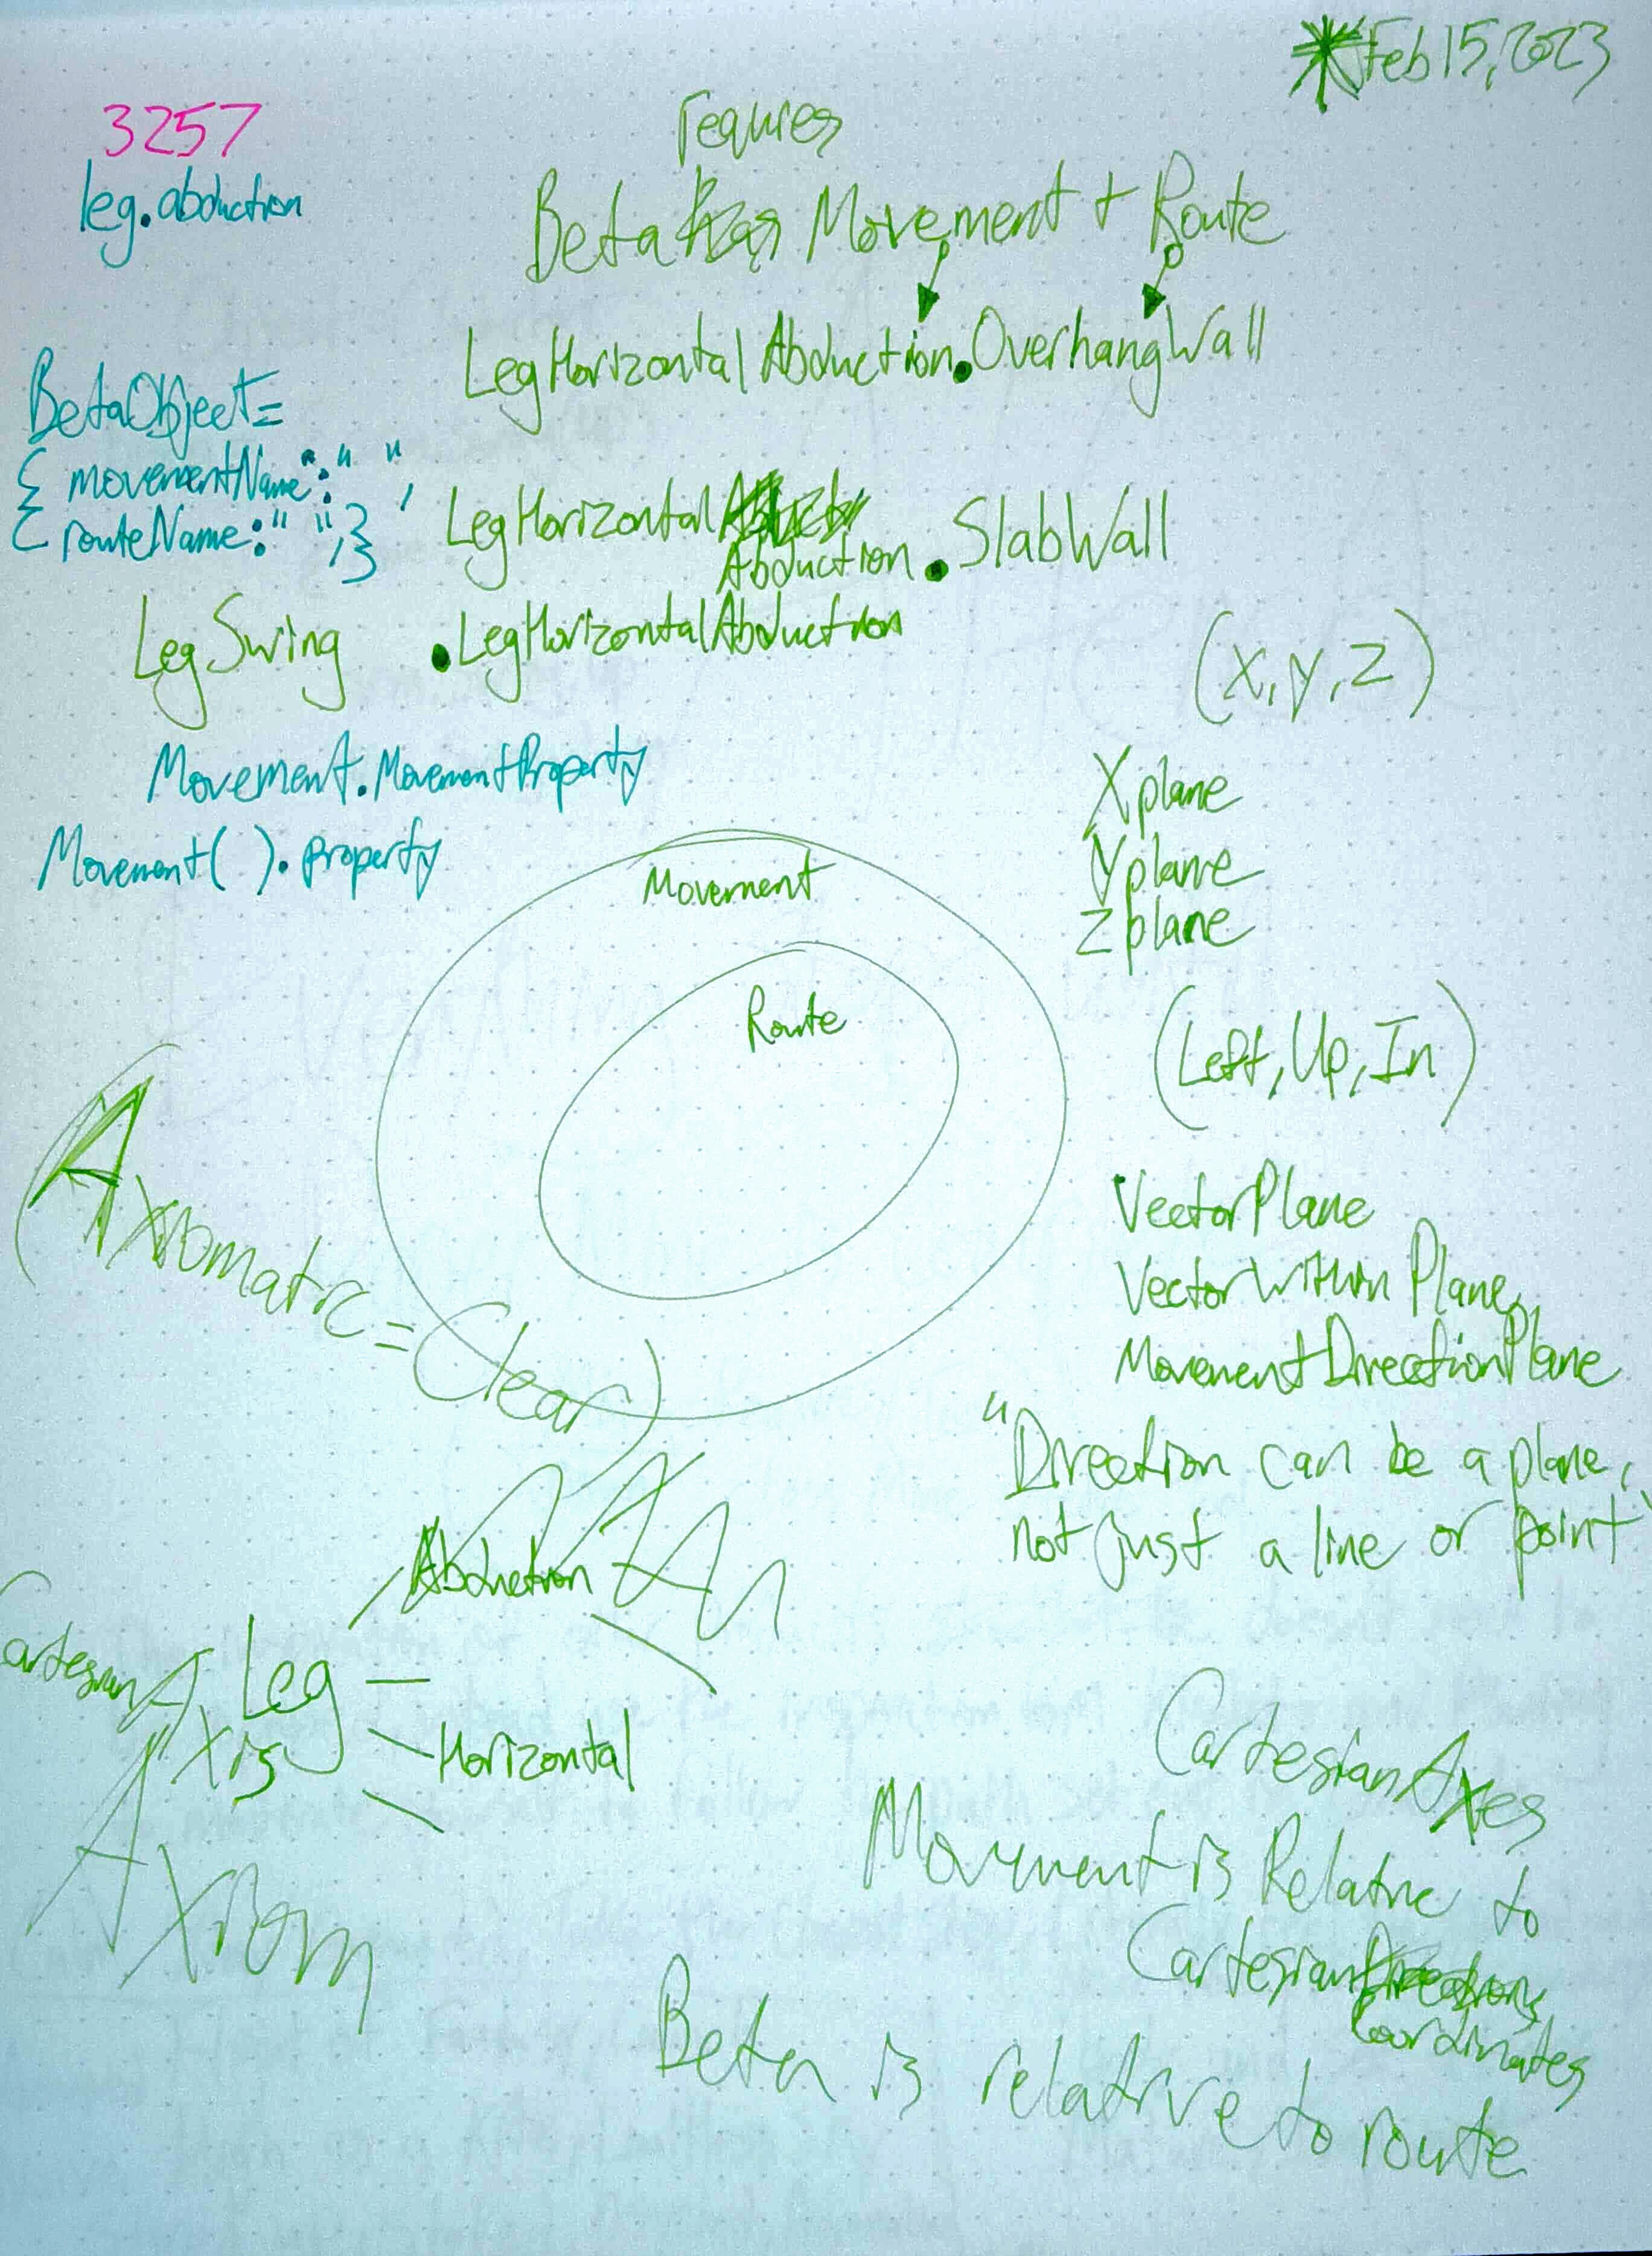 *Feb 15, 2023
3257
leg.abduction
requires
Beta has Movement + Route
LegHorizontalAbduction.OverhangWall
BetaObject=
{ movementName: " ",
{ routeName: " ",}}
LegHorizontal
Abduction.SlabWall
LegSwing .LegHorizontalAbduction
(x,y,z)
Movement.MovementProperty
Movement( ).property
Xplane
Yplane
Zplane
Movement
Route
(Left, Up, In)
(Axiomatic = Clear)
VectorPlane
VectorWithinPlane
MovementDirectionPlane
"Direction can be a plane,
not just a line or point
Abduction
Cartesian
Axis
Leg
Horizontal
Axiom
CartesianAxes
Movement is Relative to
Cartesian Directions
Coordinates
Beta is relative to route